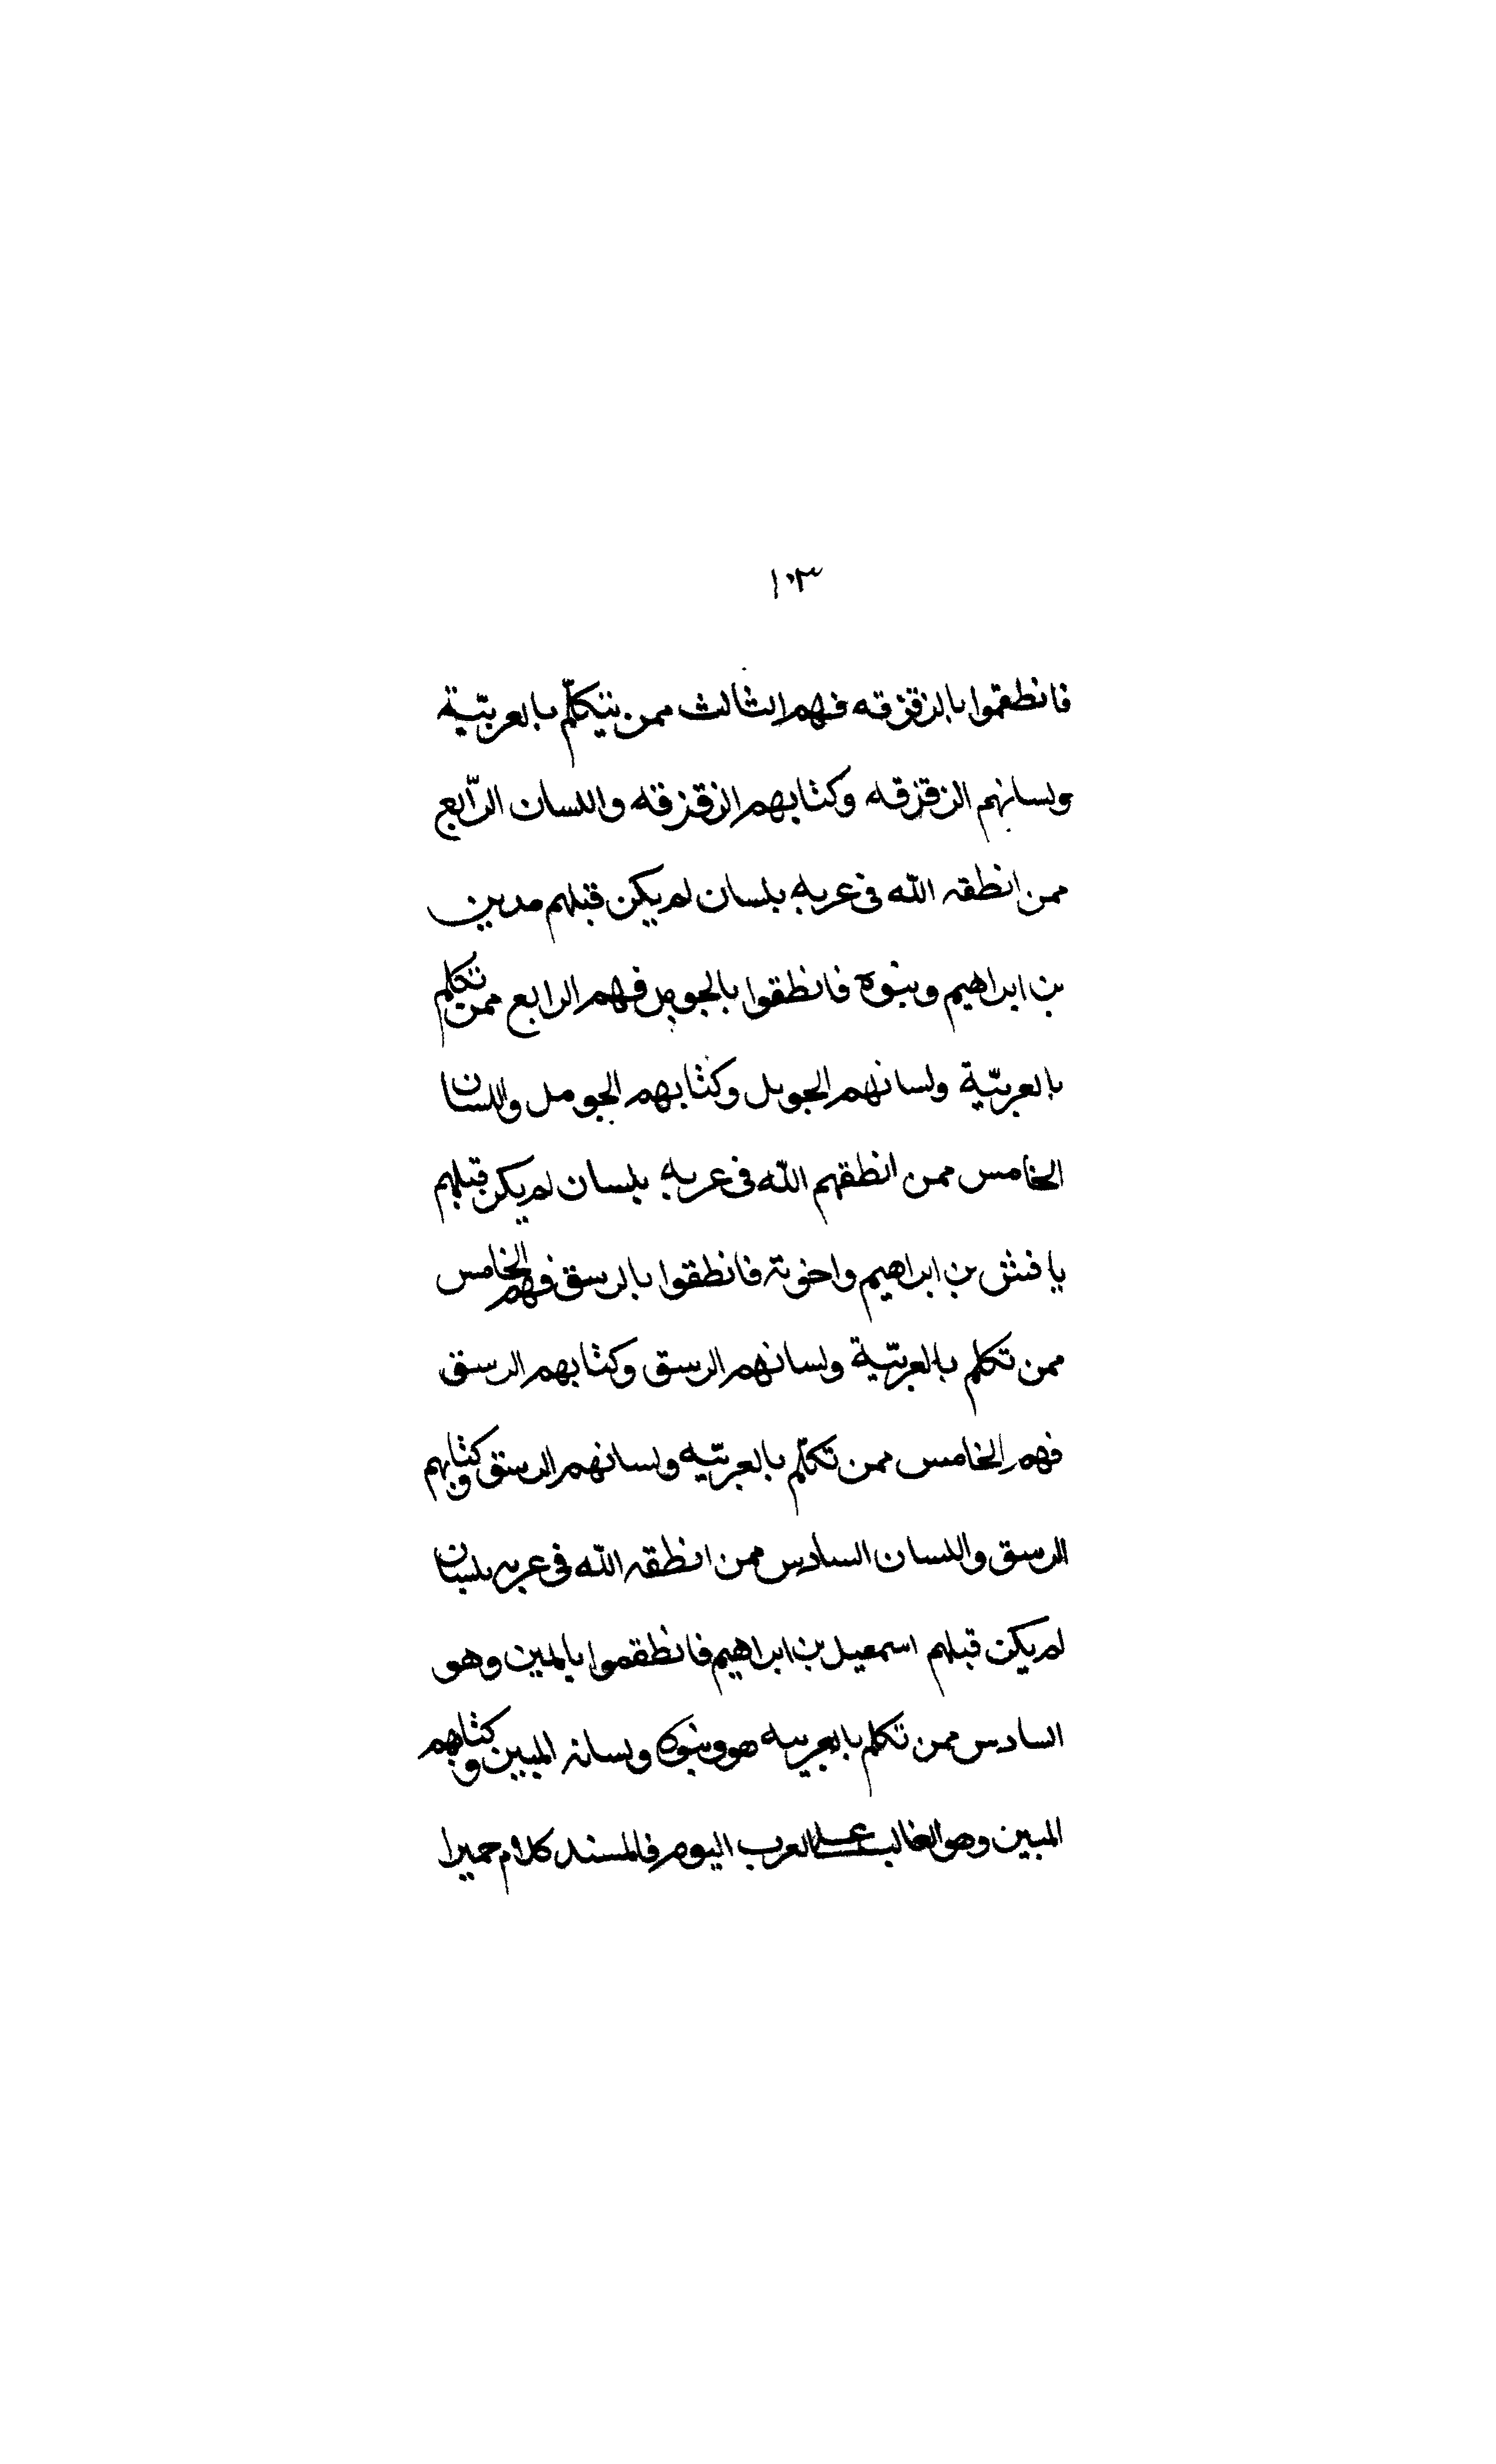 ١٠٣
فانطقموا بالزقزقه فهم الثالث ممن يتكلّم بالعربيّة
ولسانهم الزقزقه وكتابهم الزقزقه واللسان الرّابع
ممن انطقه الله فى عربه بلسان لم يكن قبلهم مدين
بن ابراهيم وبنوه فانطقوا بالحويل فهم الرابع ممن تكلم
بالعربيّة ولسانهم الحويل وكتابهم الحويل واللسان
الخامس ممن انطقهم الله فى عربه بلسان لم يكن قبلهم
يافش بن ابراهيم واخوته فانطقوا بالرسق فهم الخامس
ممن تكلم بالعربيّة ولسانهم الرسق وكتابهم الرسق
فهم الخامس ممن تكلّم بالعربيّه ولسانهم الرسق وكتابهم
الرسق واللسان السادس ممن انطقه الله فى عربه بلسان
لم يكن قبلهم اسمعيل بن ابراهيم فانطقموا بالمبين وهو
السادس ممن تكلم بالعربيه هو وبنوه ولسانه المبين وكتابهم
المبين وهو الغالب على العرب اليوم فالمسند كلام حميرا